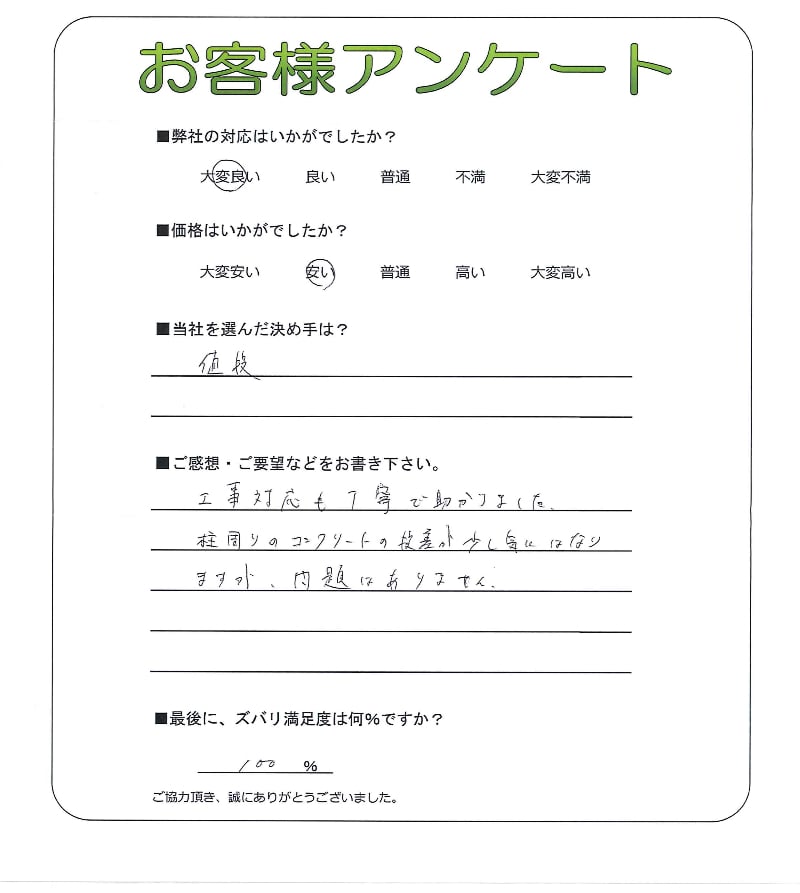 お客様アンケート
■弊社の対応はいかがでしたか？
大変良い 良い 普通 不満 大変不満
■価格はいかがでしたか？
大変安い 安い 普通 高い 大変高い
■当社を選んだ決め手は？
値段
■ご感想・ご要望などをお書き下さい。
工事対応も丁寧で助かりました。
柱周りのコンクリートの段差が少し気にはなり
ますが、問題はありません。
■最後に、ズバリ満足度は何%ですか？
100 %
ご協力頂き、誠にありがとうございました。